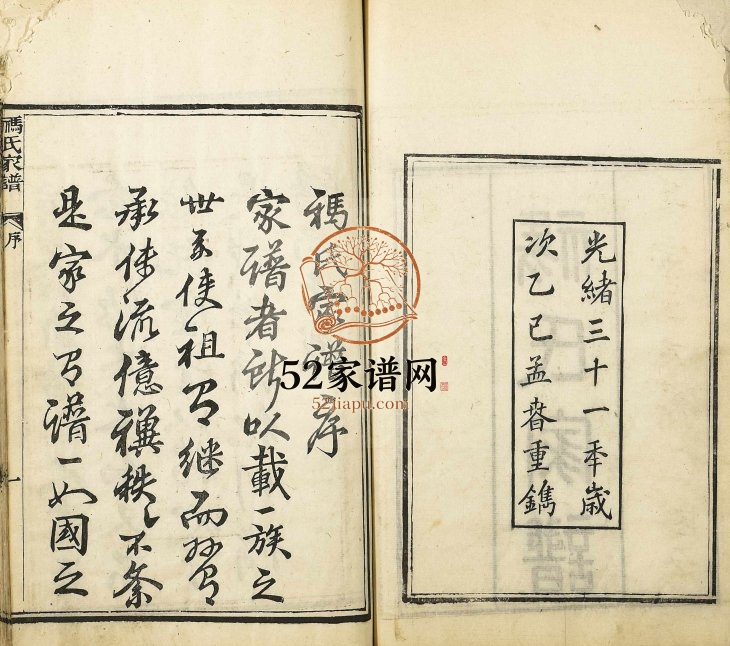 光緒三十一年歲
次乙巳孟春重鐫
禡氏家譜序
家譜者所以載一族之
世系使祖有继而孙有
承使流億禩秩〻不紊
是家之有譜一如國之
禡氏家譜
序
一
52家谱网
52jiapu.com